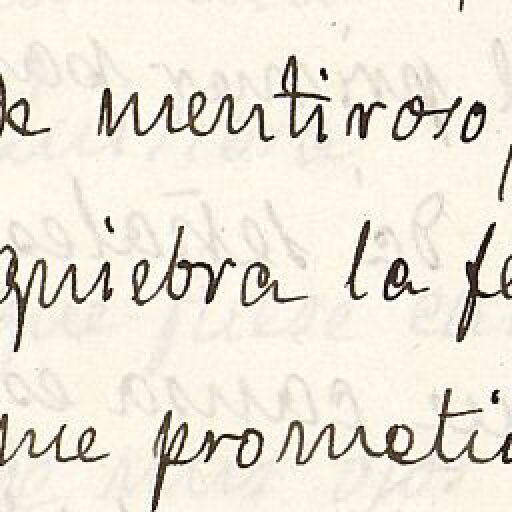 mentiroso,
quiebra la fe
me prometió